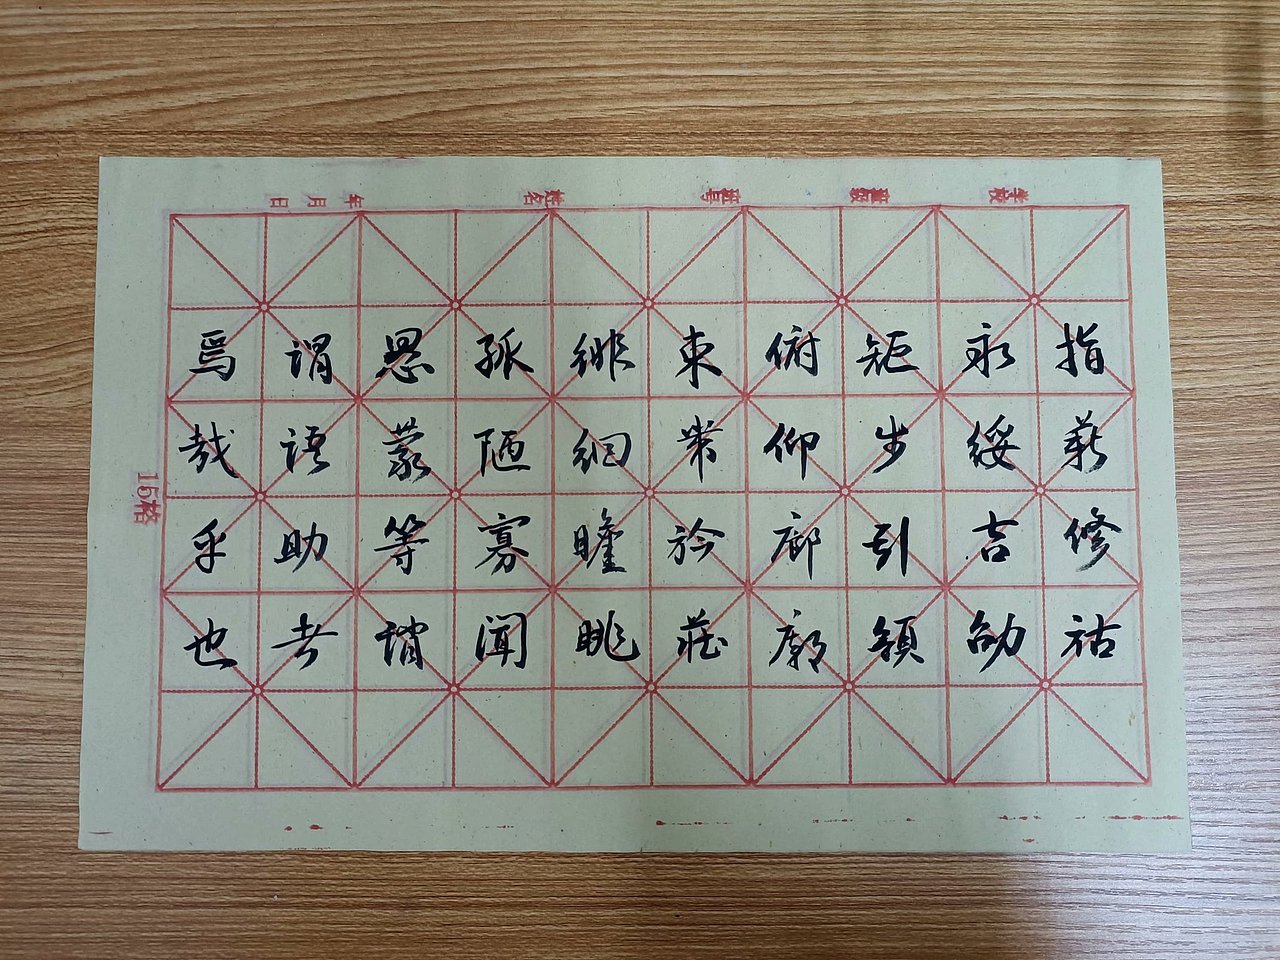 指薪修祜
永綏吉劭
矩步引領
俯仰廊廟
束帶矜莊
徘徊瞻眺
孤陋寡聞
愚蒙等誚
謂語助者
焉哉乎也
学校
班级
姓名
年月日
15格